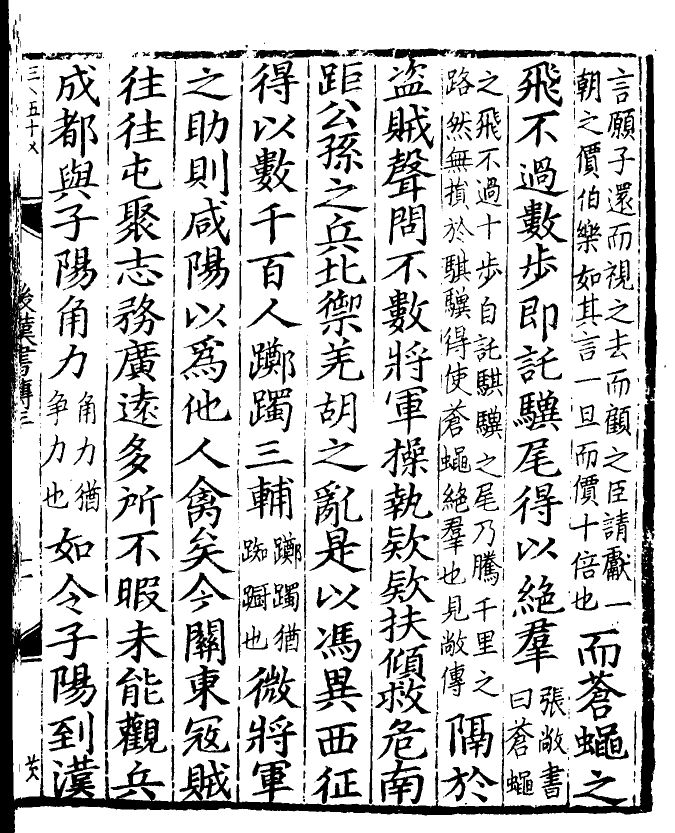 言願子還而視之去而顧之臣請獻一
朝之價伯樂如其言一旦而價十倍也
而蒼蠅之
飛不過數步即託驥尾得以絶羣
張敞書
曰蒼蠅
之飛不過十步自託騏驥之尾乃騰千里之
路然無損於騏驥得使蒼蠅絶羣也見敞傳
隔於
盗賊聲問不數將軍操執欵欵扶傾救危南
距公孫之兵北禦羌胡之亂是以馮異西征
得以數千百人躑躅三輔
躑躅猶
踟蹰也
微將軍
之助則咸陽以爲他人禽矣今關東寇賊
往往屯聚志務廣遠多所不暇未能觀兵
成都與子陽角力
角力猶
争力也
如令子陽到漢
後漢書傳三